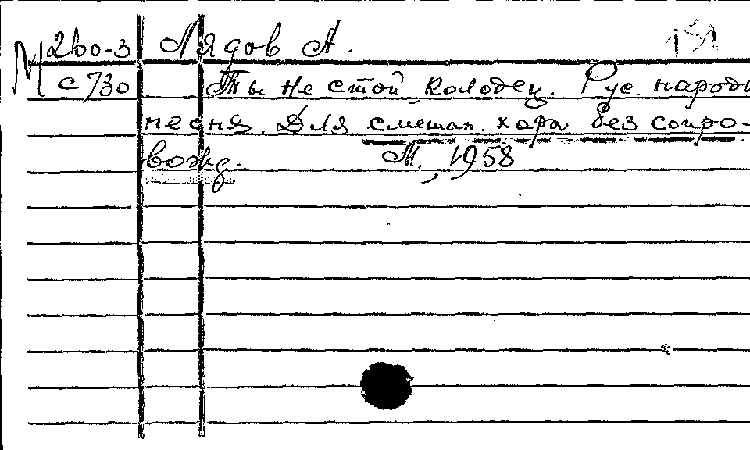 М 2600-3 Лядов А.
С 730 Ты не стой, колодец. Рус. народн
песня. Для смешан. хора без сопро-
вожд. М., 1958